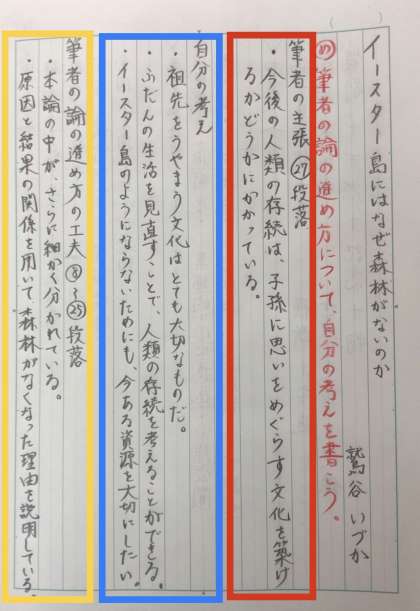 イースター島にはなぜ森林がないのか
鷲谷 いづか
め 筆者の論の進め方について、自分の考えを書こう。
筆者の主張 ㉗段落
・今後の人類の存続は、子孫に思いをめぐらす文化を築け
るかどうかにかかっている。
自分の考え
・祖先をうやまう文化はとても大切なものだ。
・ふだんの生活を見直すことで、人類の存続を考えることができる。
・イースター島のようにならないためにも、今ある資源を大切にしたい。
筆者の論の進め方の工夫 ⑧〜㉕段落
・本論の中が、さらに細かく分かれている。
・原因と結果の関係を用いて森林がなくなった理由を説明している。